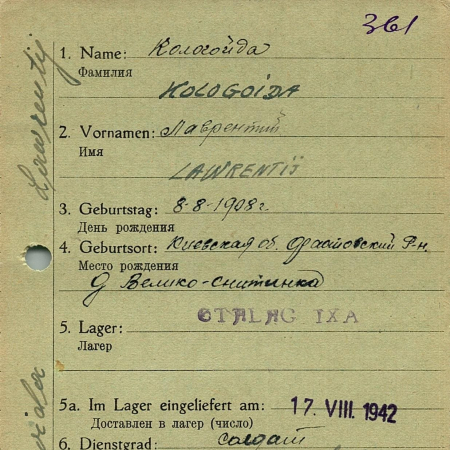 361
1. Name: Кологойда
Фамилия
KOLOGOIDA
2. Vornamen: Лаврентий
Имя
LAWRENTIJ
3. Geburtstag: 8-8-1908 г
День рождения
4. Geburtsort: Киевская об. Фастовский Р-н.
Место рождения
д Велико-снитинка
5. Lager: STALAG IXA
Лагерь
5a. Im Lager eingeliefert am: 17. VIII. 1942
Доставлен в лагерь (число)
6. Dienstgrad: солдат
Lawrentij